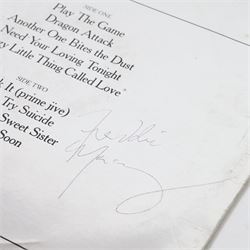 SIDE ONE
Play The Game
Dragon Attack
Another One Bites the Dust
Need Your Loving Tonight
Little Thing Called Love*
SIDE TWO
It (prime jive)
Try Suicide
Sweet Sister
Soon
Freddie
Mercury